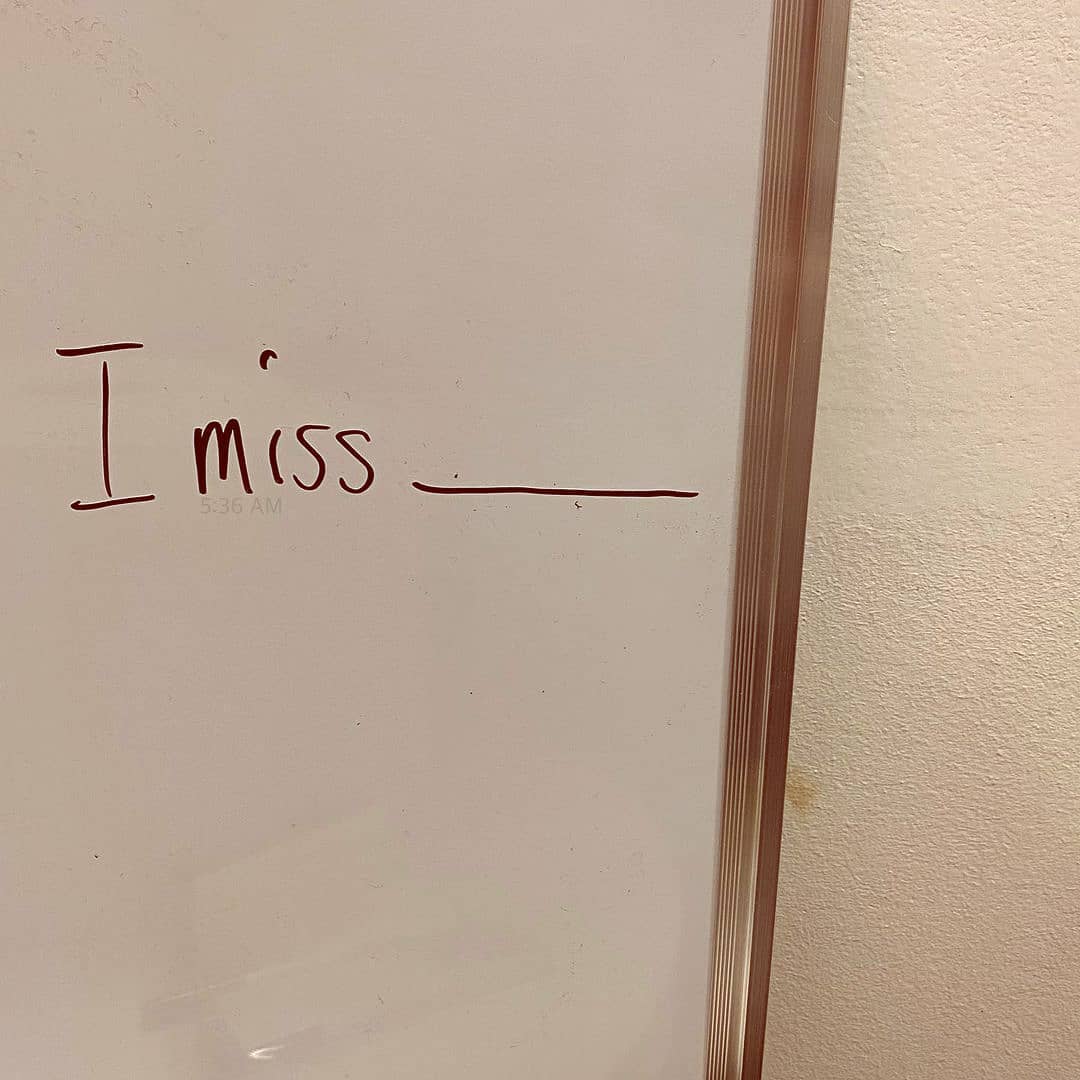 I miss ______
5:36 AM